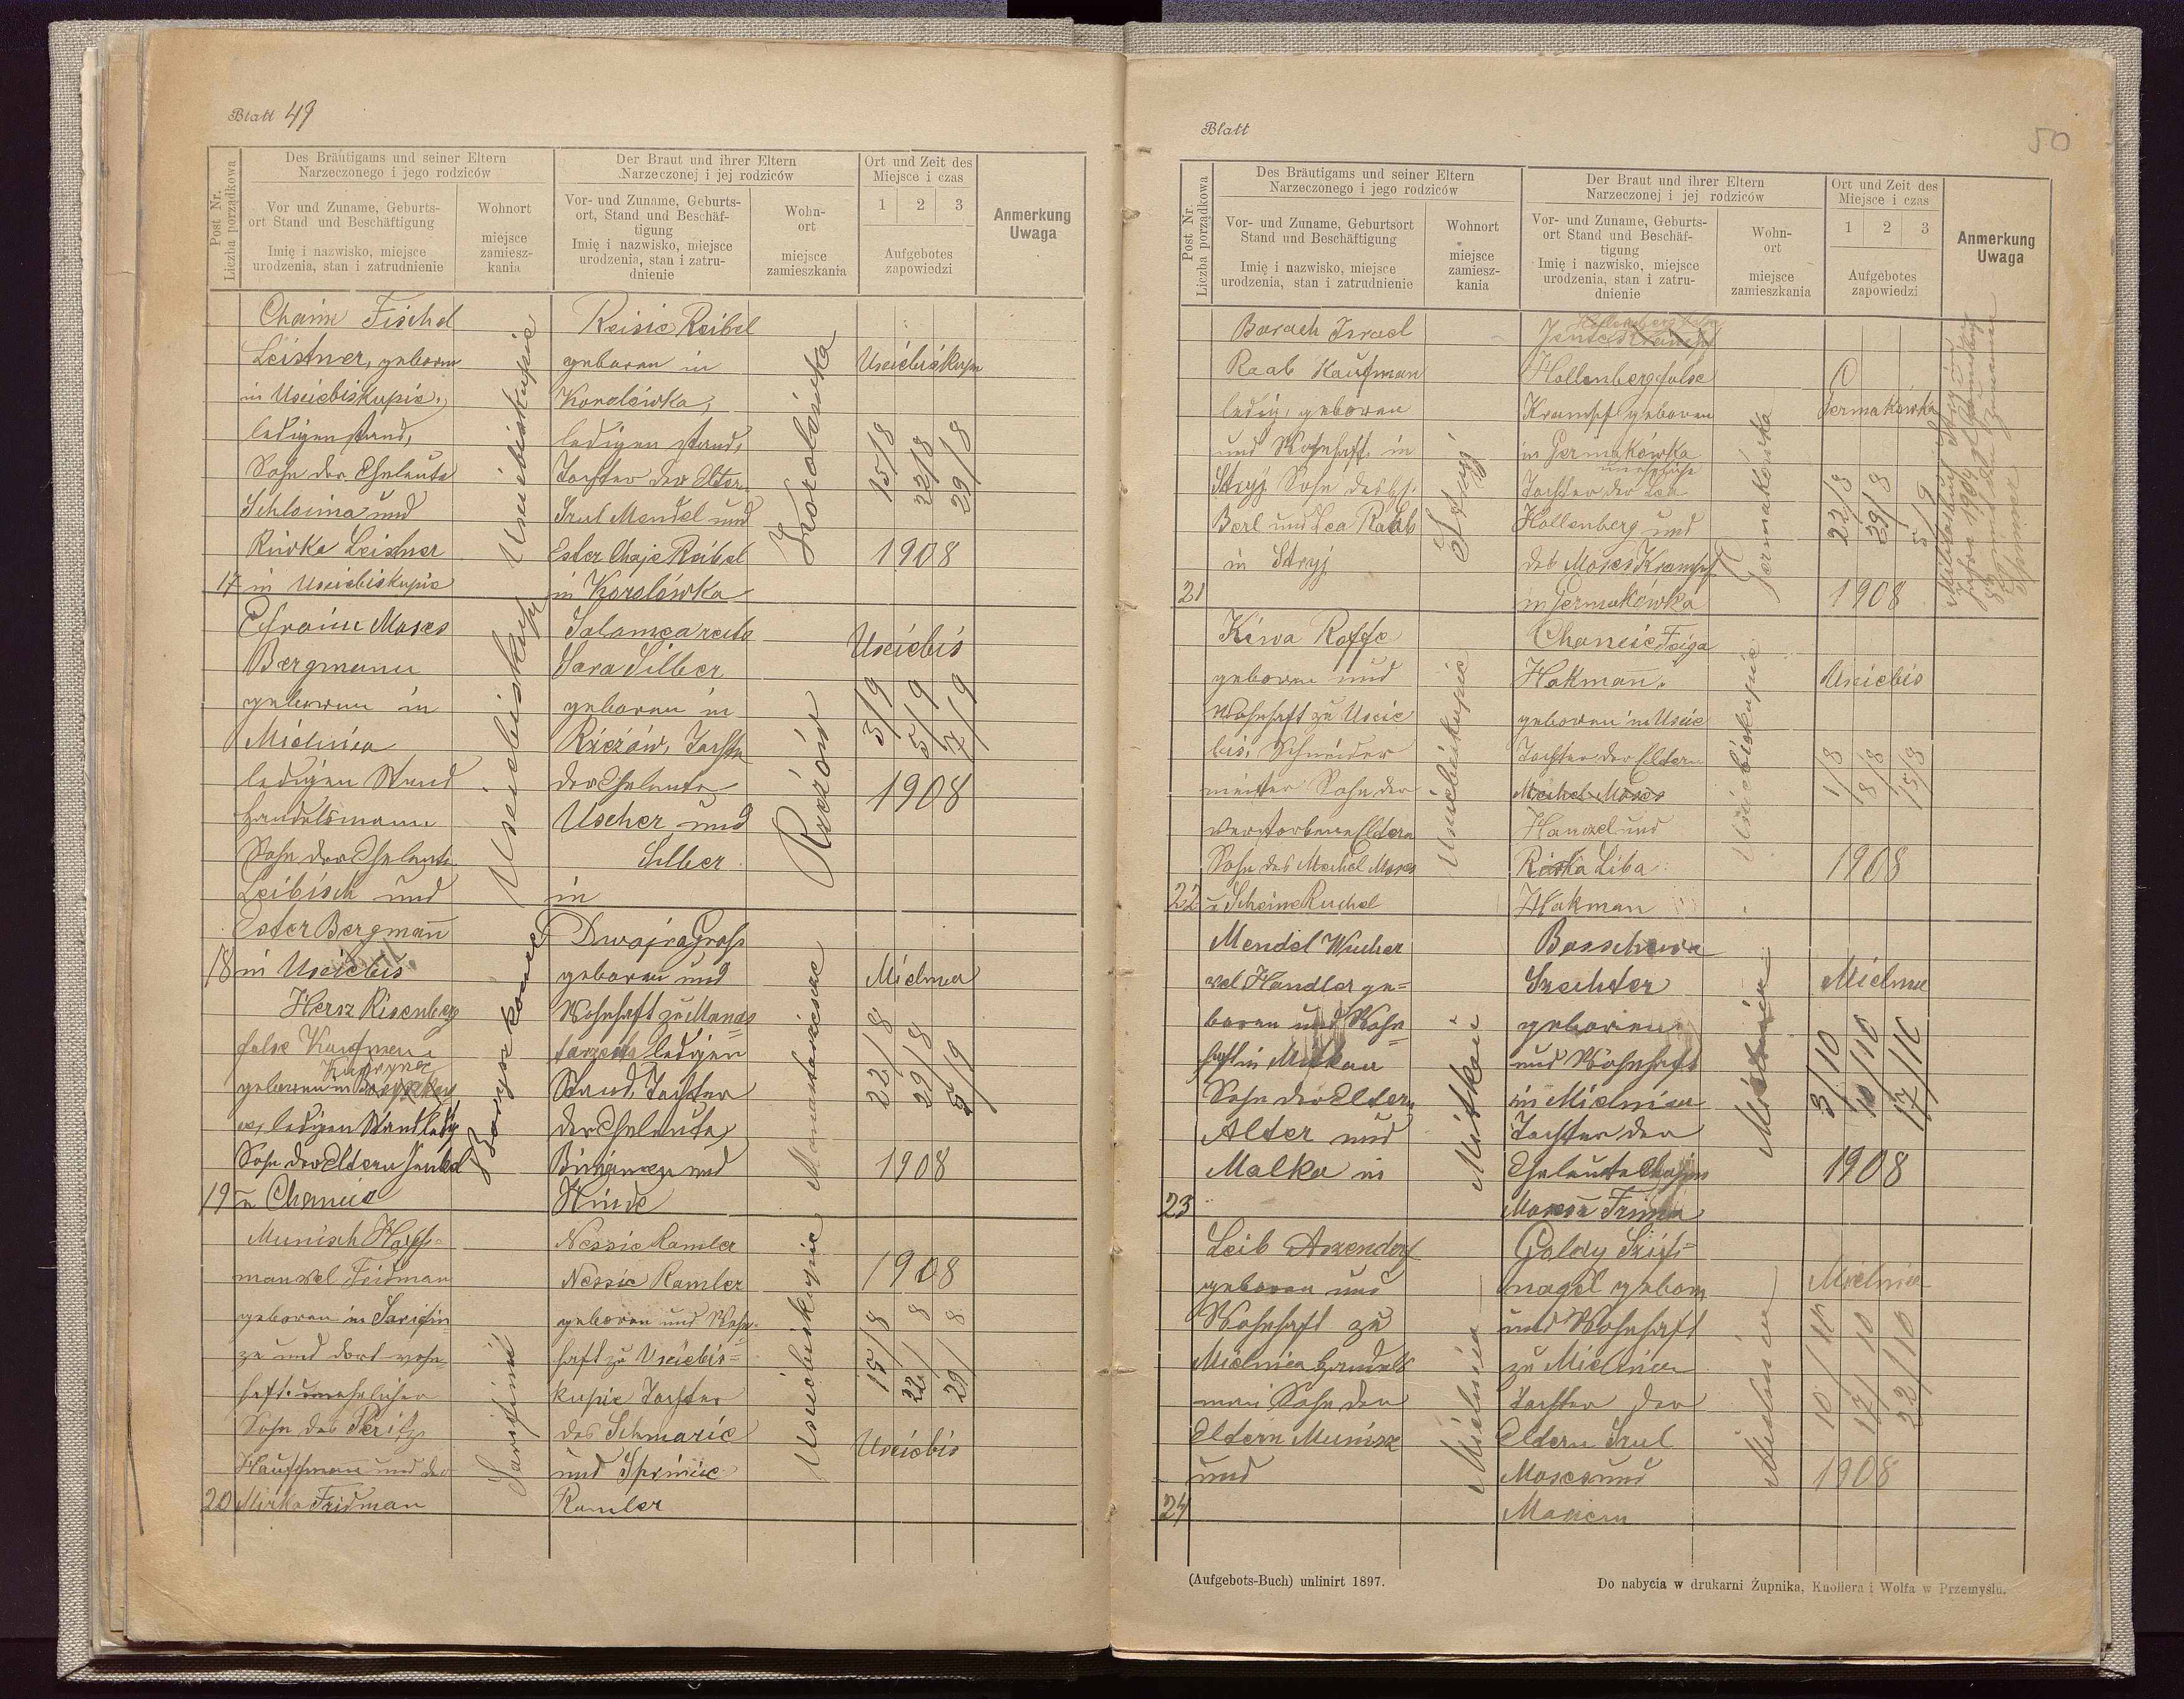 Blatt 49
Post Nr.
Liczba porządkowa
Des Bräutigams und seiner Eltern
Narzeczonego i jego rodziców
Der Braut und ihrer Eltern
Narzeczonej i jej rodziców
Ort und Zeit des
Miejsce i czas
Anmerkung
Uwaga
Vor und Zuname, Geburts-
ort Stand und Beschäftigung
Imię i nazwisko, miejsce
urodzenia, stan i zatrudnienie
Wohnort
miejsce
zamiesz-
kania
Vor- und Zuname, Geburts-
ort, Stand und Beschäf-
tigung
Imię i nazwisko, miejsce
urodzenia, stan i zatru-
dnienie
Wohn-
ort
miejsce
zamieszkania
1 2 3
Aufgebotes
zapowiedzi
Chaim Fischel
Leistner, geboren
in Usciebiskupie,
ledigen stand,
Sohn der Eheleute
Schloima und
Riwka Leistner
17 in Usciebiskupie
Usciebiskupie
Reisie Reibel
geboren in
Korolówka,
ledigen stand,
Tochter der Eltern
Srul Mendel und
Ester Chaje Reibel
in Korolówka
Korolówka
Usciebiskupie
15/8 22/8 29/8
1908
Efroim Moses
Bergmann
geboren in
Mielnica
ledigen Stand
Handelsmann
Sohn der Eheleute
Leibisch und
Ester Bergmann
18 in Usciebis
Usciebiskupie
Salomea recte
Sara Silber
geboren in
Rzezów, Tochter
der Eheleute
Uscher und
Silber
in
Rzezów
Usciebis
3/9 5/9 7/9
1908
Hersz Risenberg
false Kaufmann
geboren in
ledigen Stand
Sohn der Eltern
19 u Chancie
Dwojra Gross
geboren und
Wohnhaft zu Manas
ledigen
Stand, Tochter
der Eheleute
und
Hinde
Mielnica
22/8 29/8 5/9
1908
Munisch Hauff-
man vel Fridman
geboren in
und dort wohn-
haft unehelicher
Sohn des Peritz
Hauffman und der
20 Mirka Fridman
Nessie Ramler
Nessie Ramler
geboren und Wohn-
haft zu Usciebis=
kupie Tochter
des Schmarie
und Sprincie
Ramler
Usciebiskupie
1908
15/8 22/8 29/8
Usciebis
Blatt
50
Post Nr.
Liczba porządkowa
Des Bräutigams und seiner Eltern
Narzeczonego i jego rodziców
Der Braut und ihrer Eltern
Narzeczonej i jej rodziców
Ort und Zeit des
Miejsce i czas
Anmerkung
Uwaga
Vor- und Zuname, Geburtsort
Stand und Beschäftigung
Imię i nazwisko, miejsce
urodzenia, stan i zatrudnienie
Wohnort
miejsce
zamiesz-
kania
Vor- und Zuname, Geburts-
ort Stand und Beschäf-
tigung
Imię i nazwisko, miejsce
urodzenia, stan i zatru-
dnienie
Wohn-
ort
miejsce
zamieszkania
1 2 3
Aufgebotes
zapowiedzi
Barach Israel
Raab Kaufman
ledig, geboren
und Wohnhaft in
Stryj Sohn des
Berl und Lea Raab
in Stryj
21
Stryj
Hollenberg false
Krampf geboren
in Germakówka
uneheliche
Tochter der Lea
Hollenberg und
des Moses Krampf
in Germakówka
Germakówka
Germakówka
22/8 29/8 5/9
1908
Kiwa Roffe
geboren und
Wohnhaft zu Uscie
bis, Schneider
meister Sohn der
verstorbene Eldern
Sohn des Mechel Moses
22 u Scheine Ruchel
Usciebiskupie
Chancie Feiga
Hakmann.
geboren in Uscie
Tochter der Eldern
Mechel Moses
und
Liba
Hakman
Usciebiskupie
Usciebis
1/8 8/8 15/8
1908
Mendel Wucher
vel Handler ge=
boren und Wohn=
haft in Mitkau
Sohn der Eltern
Alter und
Malka in
23
Mitkau
Basschewa
Szechter
geboren
und Wohnhaft
in Mielnica
Tochter der
Eheleute Chaim
Mielnica
Mielnica
3/10 10/10 17/10
1908
Leib Arzendorf
geboren und
Wohnhaft zu
Mielnica Handels
man Sohn der
Eldern Munisz
und
24
Mielnica
Goldy
nagel geboren
und Wohnhaft
zu Mielnica
Tochter der
Eldern Srul
Moses und
Mariem
Mielnica
Mielnica
10/10 17/10 22/10
1908
(Aufgebots-Buch) unlinirt 1897.
Do nabycia w drukarni Żupnika, Knollera i Wolfa w Przemyślu.